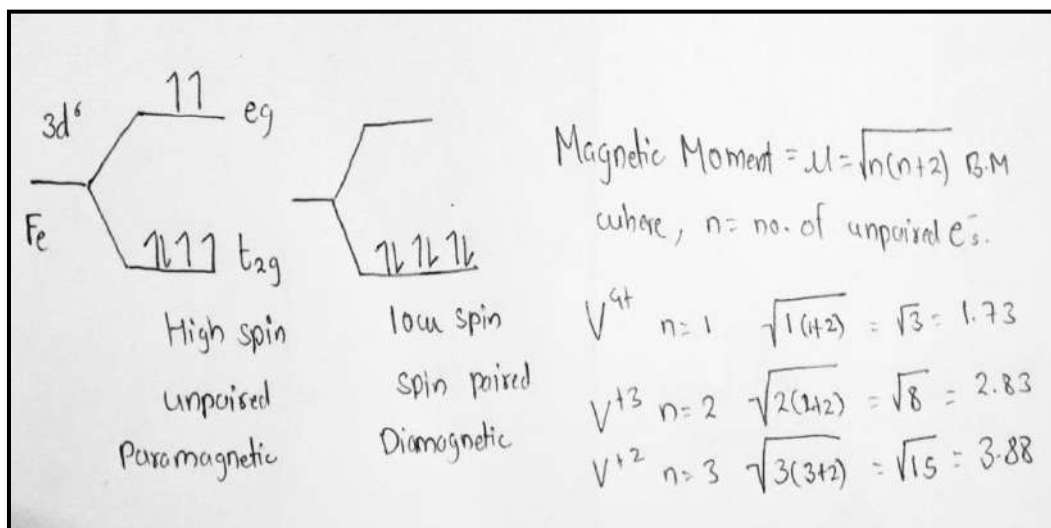 3d⁶
eg
Fe
t₂g
High spin
unpaired
Paramagnetic
low spin
spin paired
Diamagnetic
Magnetic Moment = μ = √n(n+2) B.M
where, n = no. of unpaired e⁻s.
V⁴⁺ n = 1 √1(1+2) = √3 = 1.73
V⁺³ n = 2 √2(2+2) = √8 = 2.83
V⁺² n = 3 √3(3+2) = √15 = 3.88